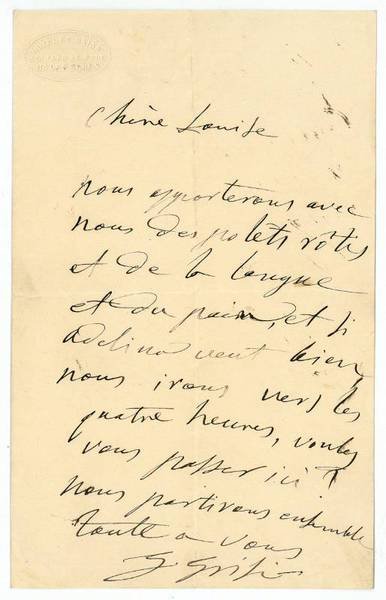 Chère Louise
nous apporterons avec
nous des polets rôtis
et de la langue
et du pain, et si
Adelina veut bien,
nous irons vers les
quatre heures, voulez
vous passer ici ?
nous partirons ensemble
toute a vous
G Grisi